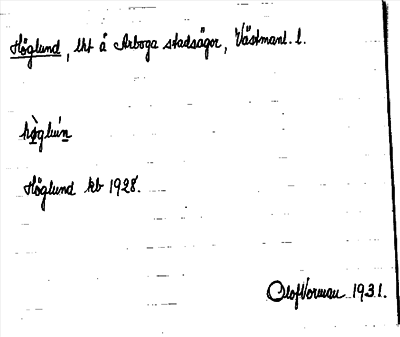 Höglund, lht å Arboga stadsägor, Västmanl. l.
hø̀gluń̲n
Höglund kb 1928.
Olof Vorman 1931.